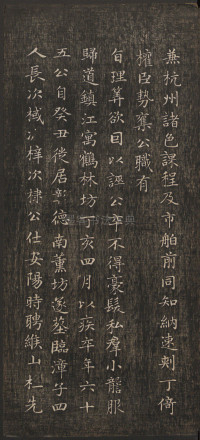 兼杭州諸色課程及市舶前同知納速剌丁倚
權臣勢奪公職有
旨理筭欲因以誣公卒不得毫髮私羣小龍服
歸道鎮江寓鶴林坊丁亥四月以疾卒年六十
五公自癸丑徙居彰德南薰坊遂墓臨漳子四
人長次棫次梓次棣公仕安陽時聘緱山杜先